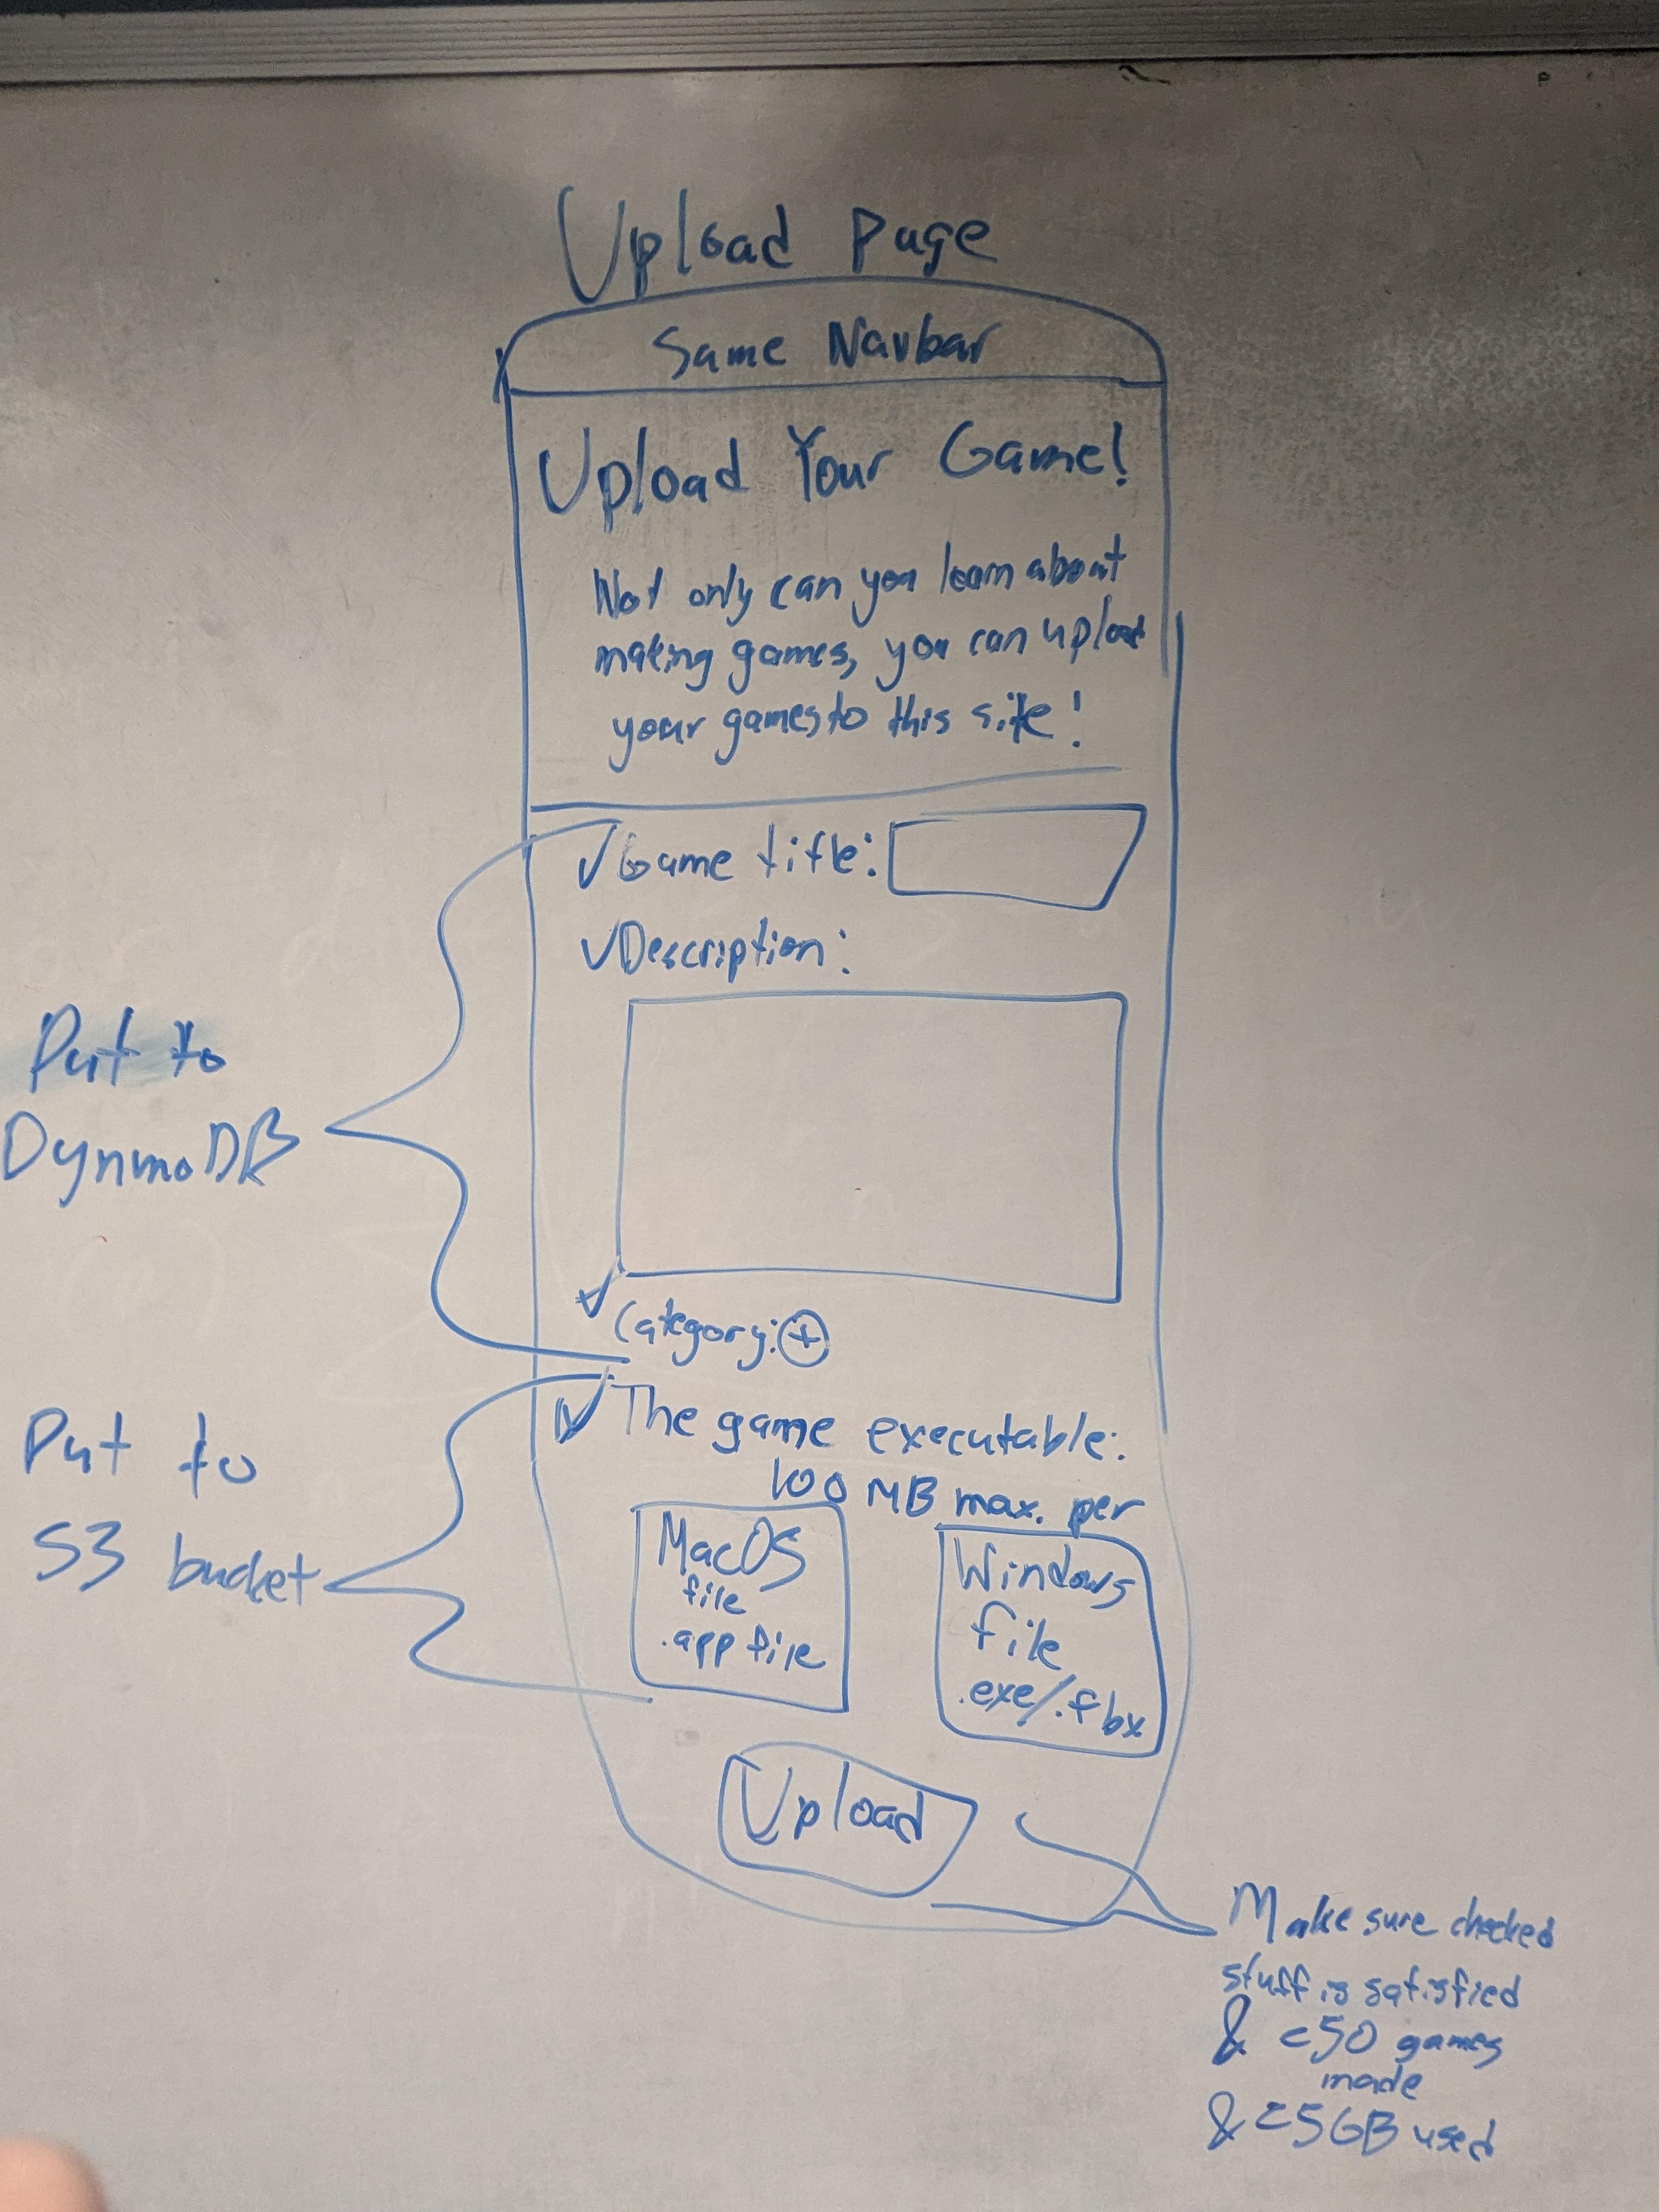 Upload Page
Same Navbar
Upload Your Game!
Not only can you learn about
making games, you can upload
your games to this site!
✓Game title:
✓Description:
Put to
DynmoDB
✓Category: +
✓The game executable:
100 MB max. per
Put to
S3 bucket
MacOS
file
.app file
Windows
file
.exe/.fbx
Upload
Make sure checked
stuff is satisfied
& <50 games
made
& <5GB used